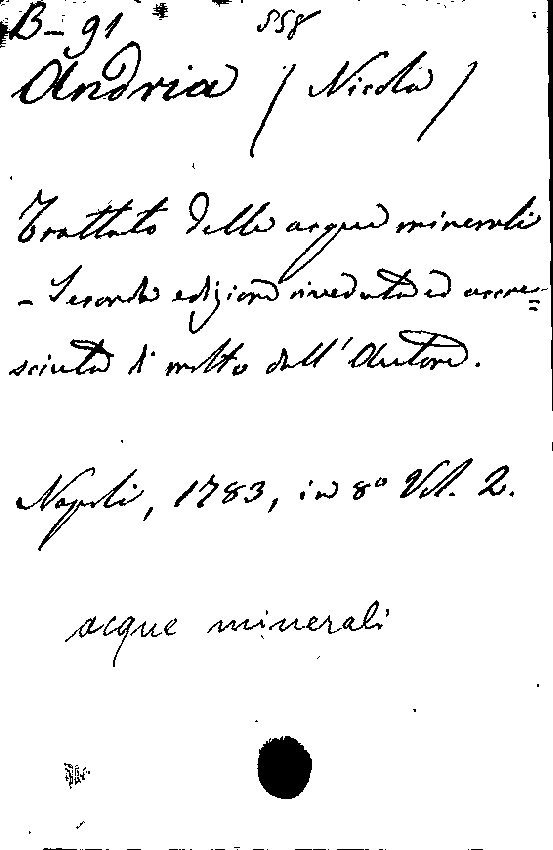 B-91 558
Andria (Nicola)
Trattato delle acque minerali
- Seconda edizione riveduta ed accre=
sciuta di molto dall'Autore.
Napoli, 1783, in 8º Vol. 2.
acque minerali